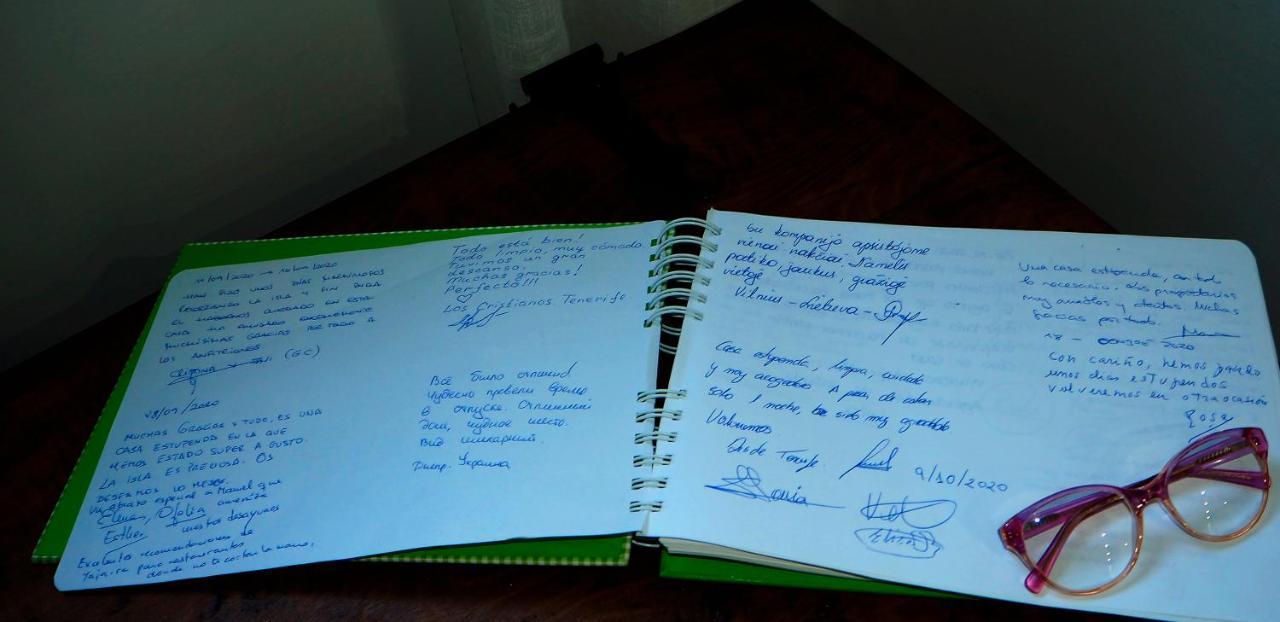 11/09/2020 → 14/09/2020
HAN SIDO UNOS DÍAS
RECORRIENDO LA ISLA Y SIN DUDA
EL HABERNOS QUEDADO EN ESTA
CASA HA AYUDADO ENORMEMENTE
MUCHÍSIMAS GRACIAS POR TODO A
LOS ANFITRIONES
(GC)
Todo está bien!
Todo limpio, muy cómodo
Tuvimos un gran
descanso.
Muchas gracias!
Perfecto!!!
♡
Los Cristianos Tenerife
MUCHAS GRACIAS X TODO, ES UNA
CASA ESTUPENDA EN LA QUE
HEMOS ESTADO SUPER A GUSTO.
LA ISLA ES PRECIOSA. OS
DESEAMOS LO MEJOR.
Un abrazo especial a Manuel que
Elena, Ofelia
Esther nuestros desayunos
Yaiza para restaurantes
donde no te cortan la mano,
Всё было отлично!
Чудесно провели время
в отпуске. Отличный
дом, чудное место.
Вид шикарный.
Днепр. Украина
Su kompanija apsistojome
vienai nakčiai. Namelis
patiko, jaukus, gražioje
vietoje
Vilnius - Lietuva -
Casa estupenda, limpia, cuidada
y muy acogedora. A pesar de estar
solo 1 noche, ha sido muy agradable
Volveremos
Desde Tenerife
9/10/2020
Sonia
Una casa estupenda, con todo
lo necesario. Los propietarios
muy amables y atentos. Muchas
gracias por todo.
18 - OCTUBRE 2020
Con cariño, hemos pasado
unos días estupendos
volveremos en otra ocasión
Rosa